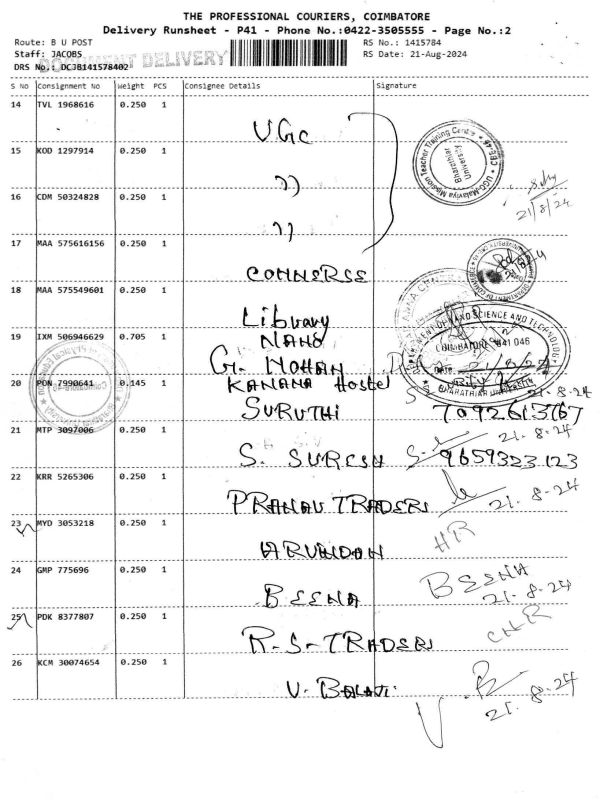 THE PROFESSIONAL COURIERS, COIMBATORE
Delivery Runsheet - P41 - Phone No.:0422-3505555 - Page No.:2
Route: B U POST RS No.: 1415784
Staff: JACOBS RS Date: 21-Aug-2024
DRS No.: DCJB141578402
DOCUMENT DELIVERY
S No Consignment No Weight PCS Consignee Details Signature
14 TVL 1968616 0.250 1 UGC
15 KOD 1297914 0.250 1 ))
16 CDM 50324828 0.250 1 ))
21/8/24
17 MAA 575616156 0.250 1 COMMERSE
18 MAA 575549601 0.250 1 Library
19 IXM 506946629 0.705 1 NANO
G. MOHAN
20 PON 7990641 0.145 1 KANANA Hostel
SURUTHI 7092613767
21.8.24
21 MTP 3097006 0.250 1 S. SURESH 9659323123
21.8.24
22 KRR 5265306 0.250 1 PRANAV TRADERS
21.8.24
23 MYD 3053218 0.250 1 ARUNDAN HR
24 GMP 775696 0.250 1 BEENA BEENA
21.8.24
25 PDK 8377807 0.250 1 R-S-TRADERS CNR
26 KCM 30074654 0.250 1 V. BALAJI
21.8.24
UGC-Malaviya Mission Teacher Training Centre
Bharathiar University
DEPARTMENT OF NANO SCIENCE AND TECHNOLOGY
COIMBATORE 641 046
DATE: 21/8/24
BHARATHIAR UNIVERSITY